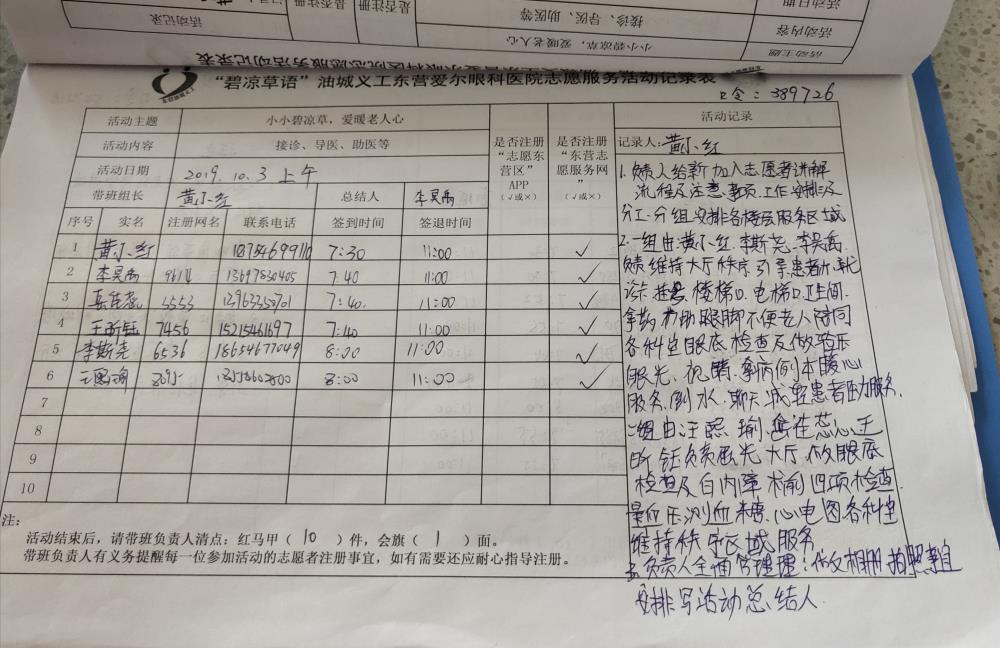 活动主题
小小碧凉草，爱暖老人心
活动内容
接诊、导医、助医等
活动日期
活动记录
是否注册
是否注册
“碧凉草语”油城义工东营爱尔眼科医院志愿服务活动记录表
口令：389726
活动主题 小小碧凉草，爱暖老人心
活动内容 接诊、导医、助医等
活动日期 2019.10.3 上午
带班组长 黄小红 总结人 李昊禹
是否注册“志愿东营区”APP（√或×）
是否注册“东营志愿服务网”（√或×）
活动记录
记录人：黄小红
序号 实名 注册网名 联系电话 签到时间 签退时间
1 黄小红 18754699110 7:30 11:00 ✓
2 李昊禹 9614 13697830405 7:40 11:00 ✓
3 5553 7:40 11:00 ✓
4 王昕钰 7456 15215461697 7:40 11:00 ✓
5 李斯尧 6536 18654677049 8:00 11:00 ✓
6 8:00 11:00 ✓
7
8
9
10
1.负责人给新加入志愿者讲解
流程及注意事项.工作安排及
分工.分组安排各楼层服务区域
2.一组由黄小红.李斯尧.李昊禹.
负责维持大厅秩序引导患者办就
诊卡 楼梯口.电梯口.卫生间.
拿药 帮助腿脚不便老人陪同
各科室眼底检查及做验光
眼光、视 拿病例本暖心
服务.倒水.聊天.减轻患者 服务.
二组由汪熙瑜. 佳蕊心.王
昕钰负责 大厅做眼底
检查及白内障术前四项检查.
量血压测血糖.心电图各科室
维持秩序区域服务
3.负责人全面管理：做文相册拍照亲自
安排写活动总结人
注：
活动结束后，请带班负责人清点：红马甲（10）件，会旗（1）面。
带班负责人有义务提醒每一位参加活动的志愿者注册事宜，如有需要还应耐心指导注册。